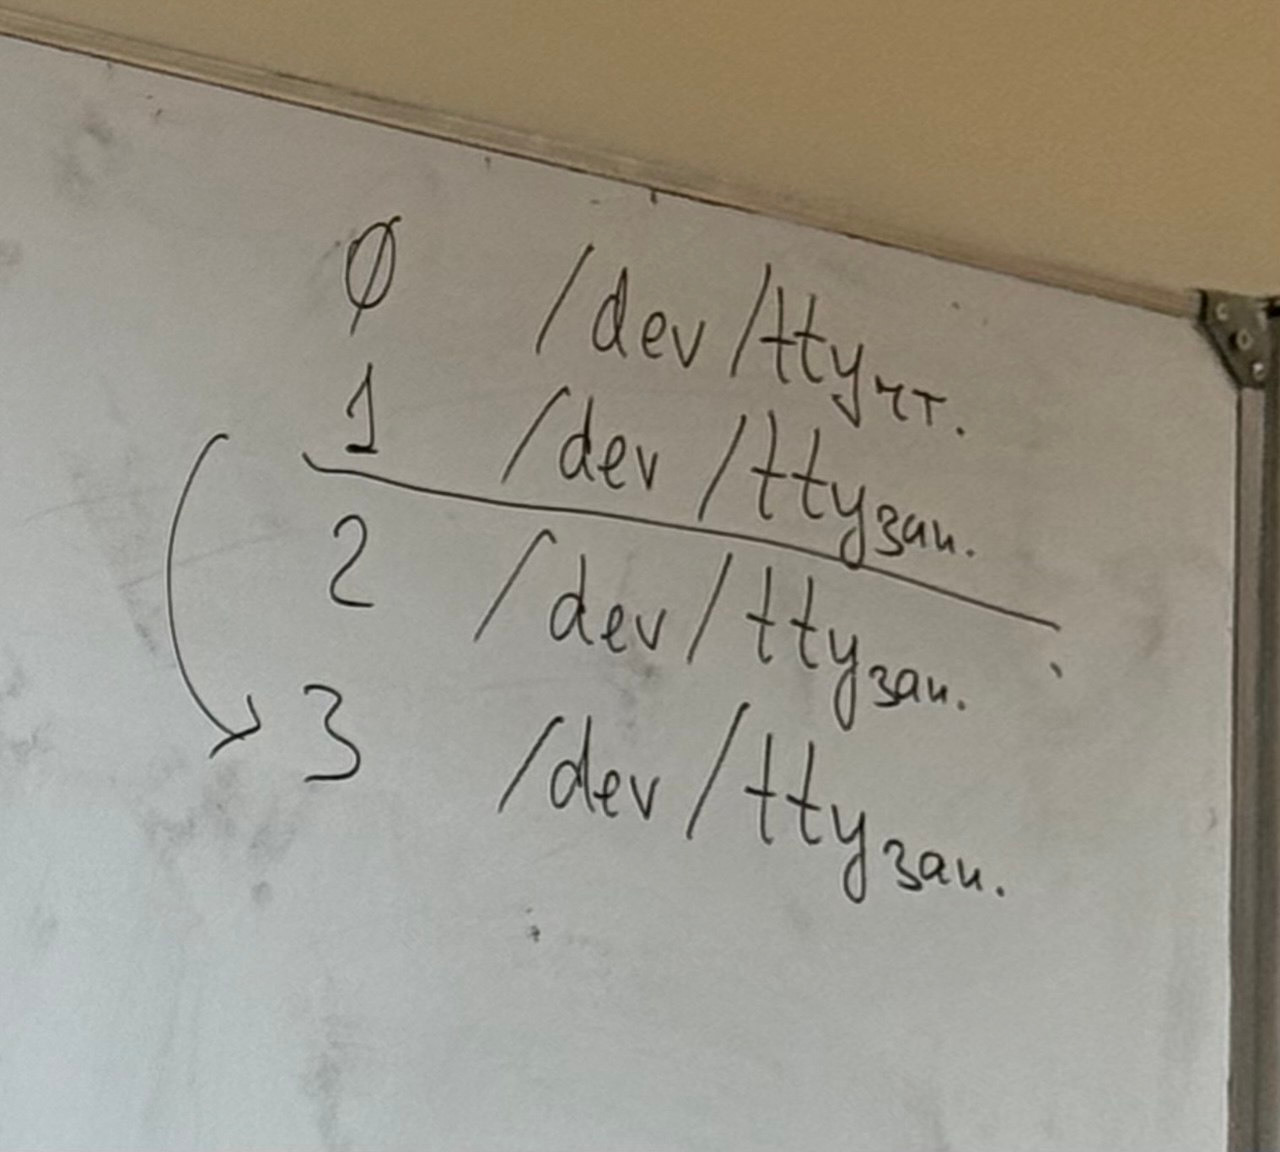 0 /dev/tty чт.
1 /dev/tty зап.
2 /dev/tty зап.
3 /dev/tty зап.